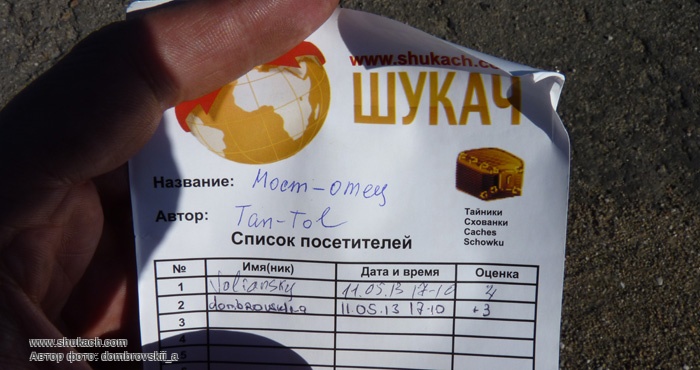 www.shukach.co
ШУКАЧ
Название: Мост-отец
Автор: Tan-Tol
Тайники
Схованки
Caches
Schowku
Список посетителей
№ Имя(ник) Дата и время Оценка
1 Voliansky 11.05.13 17-10 4
2 dombrovskii_a 11.05.13 17-10 +3
3
4
5
www.shukach.com
Автор фото: dombrovskii_a